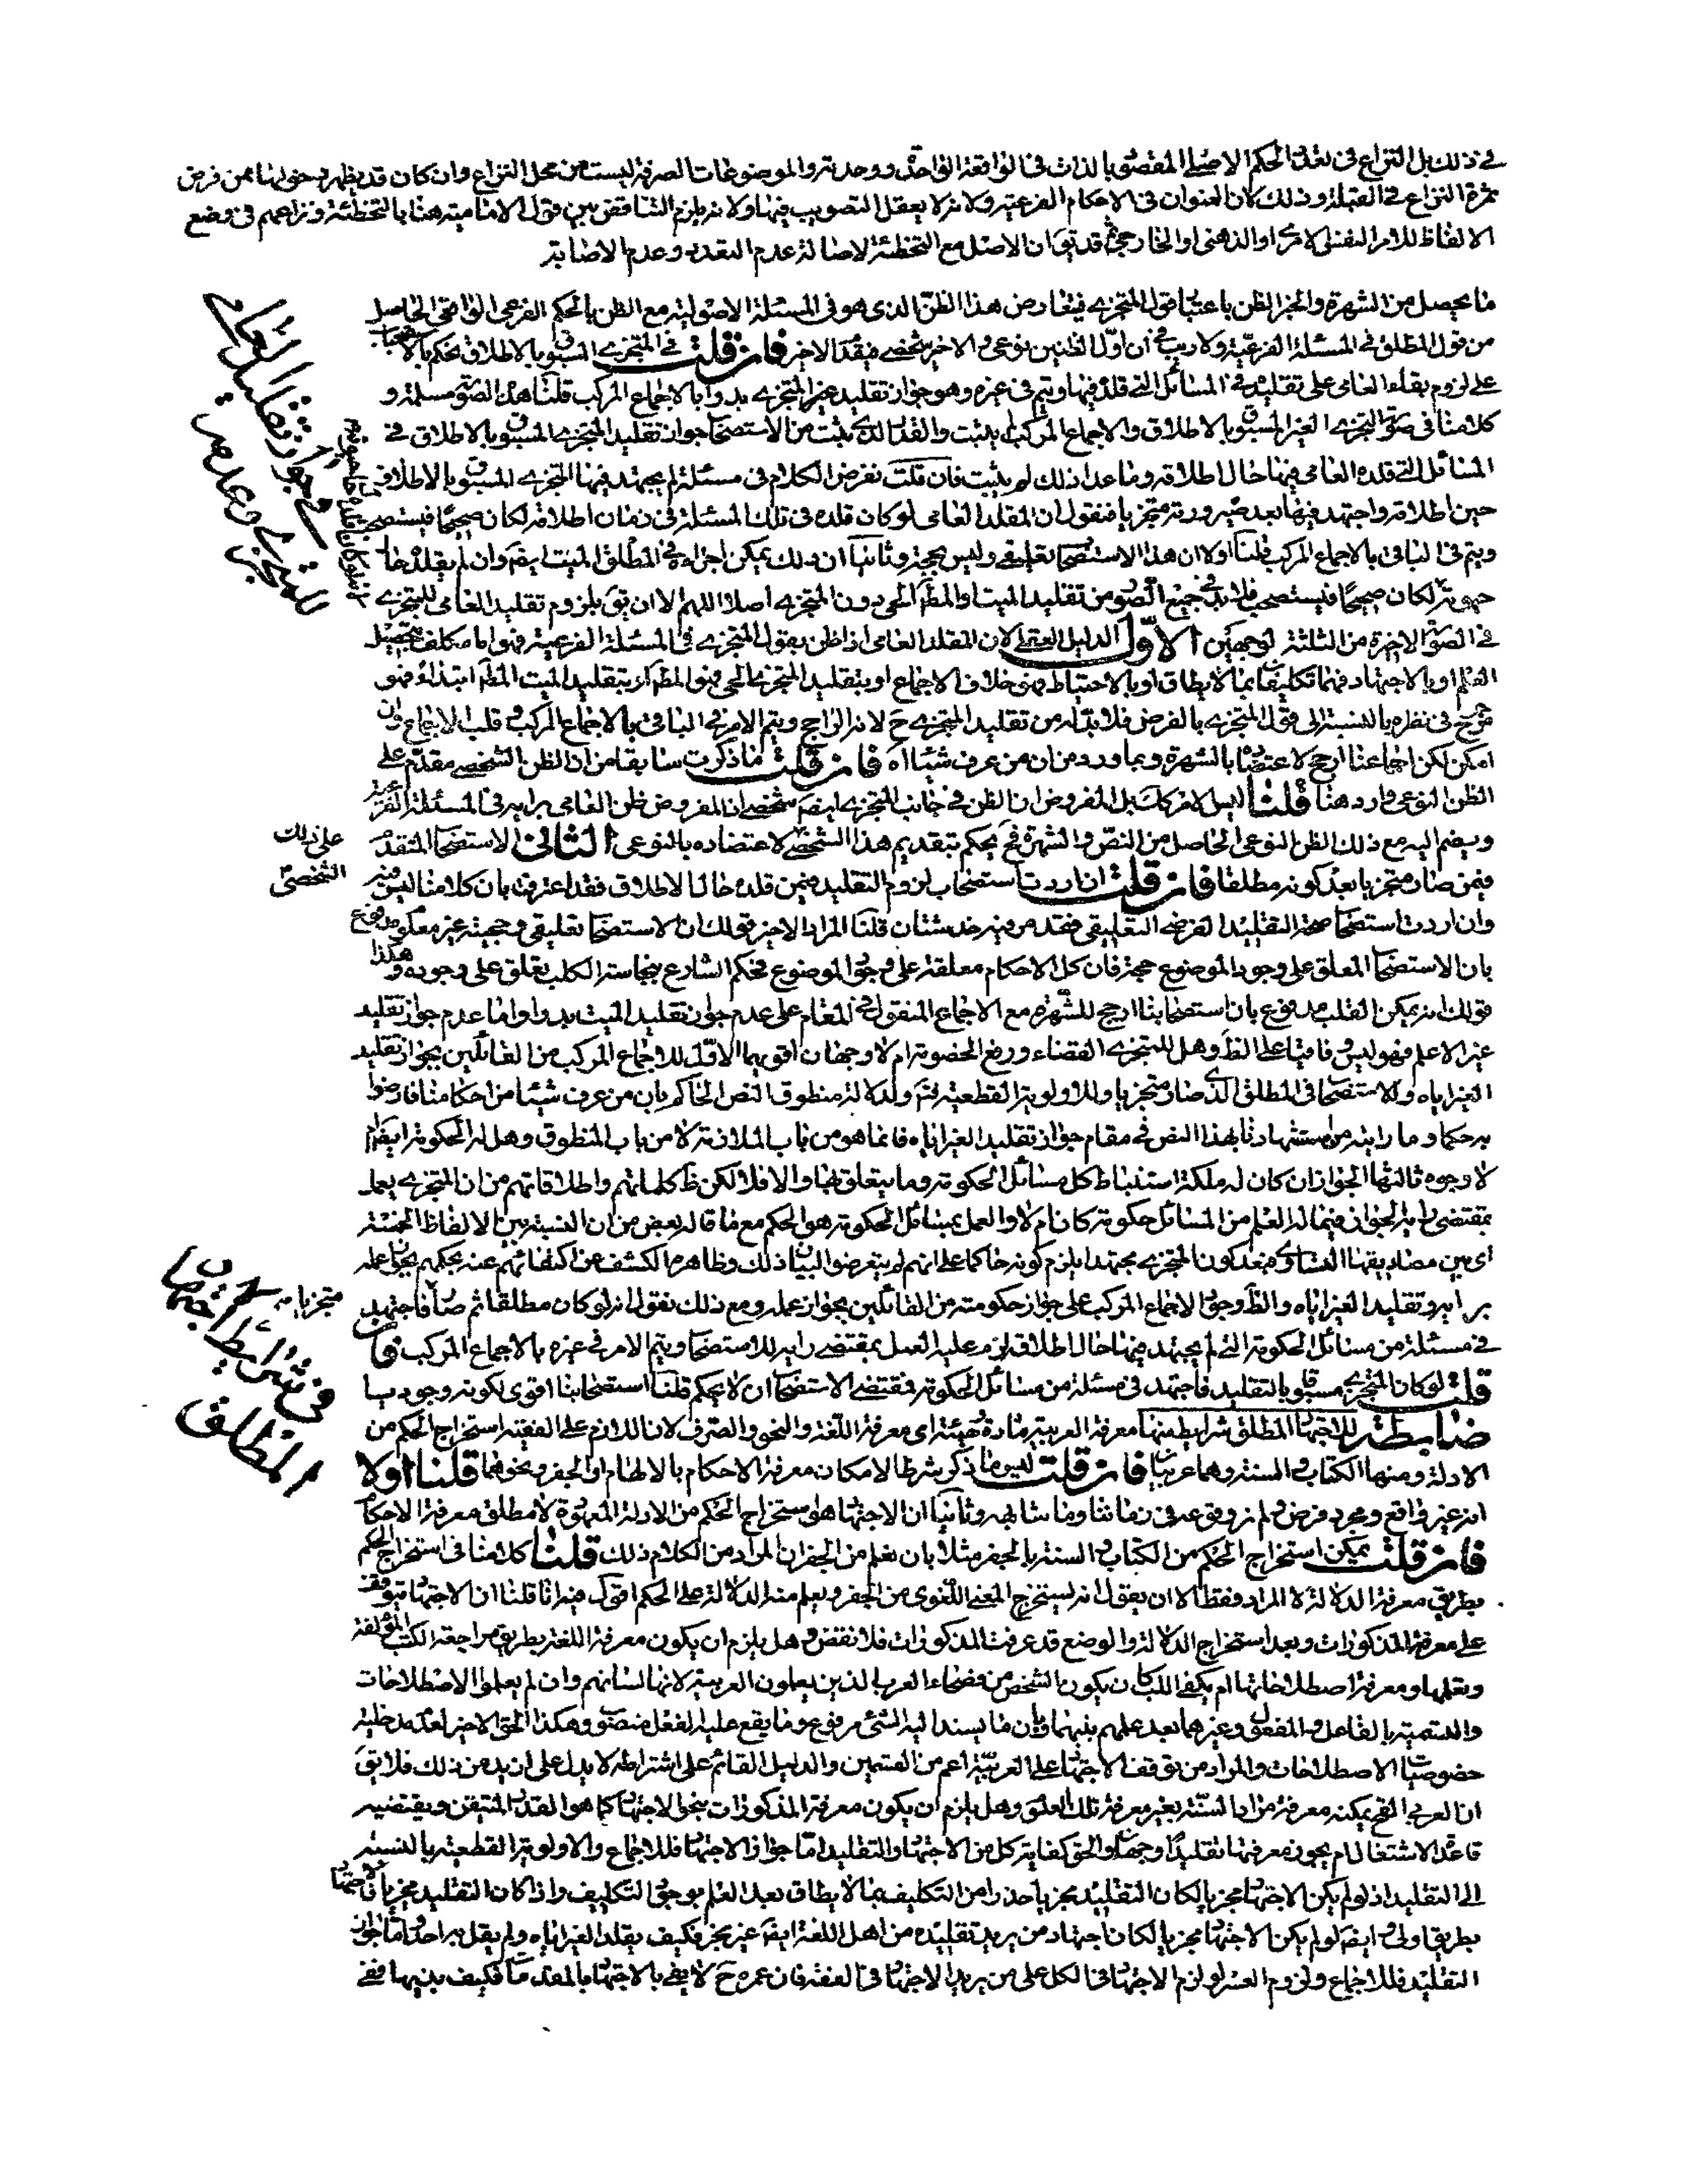 في ذلك بل النزاع في تعدد الحكم الاصلي المقصود بالذات في الواقعة الواحدة ووحدته والموضوعات الصرفة ليست من محل النزاع وان كان قد يظهر من فرض
ثمرة النزاع في القبلة وذلك لان العنوان في الاحكام الفرعية ولانه لا يعقل التصويب فيها ولانه يلزم التناقض بين قول الامامية هنا بالتخطئة ونزاعهم في وضع
الالفاظ للامر النفس الامري او الذهني او الخارجي ثم قد يق ان الاصل مع التخطئة لاصالة عدم التعدد وعدم الاصابة
ما يحصل من الشهرة والخبر الظن باعتبار قول المتجزي فيتعارض هذا الظن الذي هو في المسئلة الاصولية مع الظن بالحكم الفرعي الواقعي الحاصل
من قول المطلق في المسئلة الفرعية ولا ريب في ان اول الظنين نوعي والاخر شخصي فيقدم الاخر فان قلت في المتجزي المسبوق بالاطلاق نحكم بالاستصحاب
على لزوم بقاء العامي على تقليده في المسائل التي قلده فيها ويتم في غيره وهو جواز تقليد غير المتجزي بدوا بالاجماع المركب قلنا هذه الصورة مسلمة و
كلامنا في صورة المتجزي الغير المسبوق بالاطلاق والاجماع المركب لم يثبت والقدر الذي يثبت من الاستصحاب جواز تقليد المتجزي المسبوق بالاطلاق في
المسائل التي قلده العامي فيها حال اطلاقه وما عدا ذلك لم يثبت فان قلت نفرض الكلام في مسئلة لم يجتهد فيها المتجزي المسبوق بالاطلاق
حين اطلاقه واجتهد فيها بعد صيرورته متجزيا فنقول ان المقلد العامي لو كان قلده في تلك المسئلة في زمان اطلاقه لكان صحيحا فيستصحب
ويتم في الباقي بالاجماع المركب قلنا اولا ان هذا الاستصحاب تعليقي وليس بحجة وثانيا ان ذلك يمكن اجراؤه في المطلق الميت ايضا وان لم يقلده حال
حيوته لكان صحيحا فيستصحب فلا بد في جميع الصور من تقليد الميت او المطلق الحي دون المتجزي اصلا اللهم الا ان يق بلزوم تقليد العامي للمتجزي
في الصورة الاخيرة من الثلثة لوجهين الاول الدليل العقلي لان المقلد العامي اذا ظن بقول المتجزي في المسئلة الفرعية فهو اما مكلف بتحصيل
العلم او بالاجتهاد فهما تكليف بما لا يطاق او بالاحتياط فهو خلاف الاجماع او بتقليد المتجزي الحي فهو المط او بتقليد الميت المط ابتداء فهو
مرجوح في نظره بالنسبة الى قول المتجزي بالفرض فلا بد له من تقليد المتجزي ح لانه الراجح ويتم الامر في الباقي بالاجماع المركب وقلب الاجماع وان
امكن لكن اجماعنا ارجح لاعتضاده بالشهرة وبما ورد من ان من عرف شيئا اه فان قلت ما ذكرت سابقا من ان الظن الشخصي مقدم على
الظن النوعي وارد هنا قلنا ليس الامر كك بل المفروض ان الظن في جانب المتجزي ايضا شخصي اذ المفروض ظن العامي برايه في المسئلة الفرعية
وينضم اليه مع ذلك الظن النوعي الحاصل من النص والشهرة فح يحكم بتقديم هذا الشخصي لاعتضاده بالنوعي على ذلك الشخصي الثاني الاستصحاب المتقدم
فيمن صار متجزيا بعد كونه مطلقا فان قلت ان اردت استصحاب لزوم التقليد فيمن قلده حال الاطلاق فقد اعترفت بان كلامنا ليس فيه
وان اردت استصحاب صحة التقليد الفرضي التعليقي فقد مر فيه خدشتان قلنا المراد الاخير وقولك ان الاستصحاب تعليقي وحجيته غير معلومة مدفوع
بان الاستصحاب المعلق على وجود الموضوع حجة فان كل الاحكام معلقة على وجود الموضوع فحكم الشارع بنجاسة الكلب معلق على وجوده وهكذا
قولك انه يمكن القلب مدفوع بان استصحابنا ارجح للشهرة مع الاجماع المنقول في المقام على عدم جواز تقليد الميت بدوا واما عدم جواز تقليد
غير الاعلم فهو ليس وفاقيا على الظ وهل للمتجزي القضاء ورفع الخصومة ام لا وجهان اقويهما الاول للاجماع المركب من القائلين بجواز تقليد
الغير اياه وللاستصحاب في المطلق الذي صار متجزيا وللاولوية القطعية ثم ولدلالة منطوق النص الحاكم بان من عرف شيئا من احكامنا فارضوا
به حكما وما رايته من استشهادنا بهذا النص في مقام جواز تقليد الغير اياه فانما هو من باب الملازمة لا من باب المنطوق وهل له الحكومة ايضا ام
لا وجوه ثالثها الجواز ان كان له ملكة استنباط كل مسائل الحكومة وما يتعلق بها والا فلا لكن ظ كلماتهم واطلاقاتهم من ان المتجزي يعمل
بمقتضى رايه الجواز فيما له العلم من المسائل حكومة كان ام لا والعمل بمسائل الحكومة هو الحكم مع ما قاله بعض من ان النسبة بين الالفاظ الخمسة
اي بين مصاديقها التساوي فبعد كون المتجزي مجتهدا يلزم كونه حاكما على انهم لم يتعرضوا لبيان ذلك وظاهره الكشف عن اكتفائهم عنه بحكمهم بجواز عمله
برايه وتقليد الغير اياه والظ وجود الاجماع المركب على جواز حكومته من القائلين بجواز عمله ومع ذلك نقول انه لو كان مطلقا ثم صار متجزيا فاجتهد
في مسئلة من مسائل الحكومة التي لم يجتهد فيها حال اطلاقه لزم عليه العمل بمقتضى رايه للاستصحاب ويتم الامر في غيره بالاجماع المركب فان
قلت لو كان المتجزي مسبوقا بالتقليد فاجتهد في مسئلة من مسائل الحكومة فمقتضى الاستصحاب ان لا يحكم قلنا استصحابنا اقوى لكونه وجوديا
ضابطة للاجتهاد المطلق شرايط منها معرفة العربية مادة وهيئة اي معرفة اللغة والنحو والصرف لان اللازم على الفقيه استخراج الحكم من
الادلة ومنها الكتاب والسنة وهما عربيان فان قلت ليس ما ذكر شرطا لامكان معرفة الاحكام بالالهام او الجفر ونحوهما قلنا اولا
انه غير واقع ومجرد فرض لم نر وقوعه في زماننا وما شابهه وثانيا ان الاجتهاد هو استخراج الحكم من الادلة المعهودة لا مطلق معرفة الاحكام
فان قلت يمكن استخراج الحكم من الكتاب والسنة بالجفر مثلا بان نعلم من الجفر ان المراد من الكلام ذلك قلنا كلامنا في استخراج الحكم
بطريق معرفة الدلالة لا المراد فقط الا ان يقول انه يستخرج المعنى اللغوي من الجفر ويعلم منه الدلالة على الحكم اقول فيه انا قلنا ان الاجتهاد يتوقف
على معرفة المذكورات وبعد استخراج الدلالة والوضع قد عرفت المذكورات فلا نقض وهل يلزم ان يكون معرفة اللغة بطريق مراجعة الكتب المؤلفة
وتعلمها ومعرفة اصطلاحاتها ام يكفي اللب كان يكون الشخص من فصحاء العرب الذين يعلمون العربية لانها لسانهم وان لم يعلموا الاصطلاحات
والتسمية بالفاعل والمفعول وغيرهما بعد علمهم بانهما وبان ما يسند اليه الشئ مرفوع وما يقع عليه الفعل منصوب وهكذا الحق الاخير لعدم مدخلية
خصوصيات الاصطلاحات والمراد من توقف الاجتهاد على العربية اعم من القسمين والدليل القائم على اشتراطه لا يدل على ازيد من ذلك فلا يق
ان العربي القح يمكنه معرفة مزايا السنة بغير معرفة تلك العلوم وهل يلزم ان يكون معرفة المذكورات بنحو الاجتهاد كما هو القدر المتيقن ويقتضيه
قاعدة الاشتغال ام يجوز معرفتها تقليدا وجهان والحق كفاية كل من الاجتهاد والتقليد اما جواز الاجتهاد فللاجماع والاولوية القطعية بالنسبة
الى التقليد اذ لو لم يكن الاجتهاد مجزيا لكان التقليد مجزيا حذرا من التكليف بما لا يطاق بعد العلم بوجود التكليف واذا كان التقليد مجزيا فالاجتهاد
بطريق اولى وايضا لو لم يكن الاجتهاد مجزيا لكان اجتهاد من يريد تقليده من اهل اللغة ايضا غير مجز فكيف يقلد الغير اياه ولم يقل به احد واما جواز
التقليد فللاجماع ولزوم العسر لو لزم الاجتهاد في الكل على من يريد الاجتهاد في الفقه فان عمره ح لا يفي بالاجتهاد بالمقدمات فكيف بذيها ففي
في جواز تقليد العامي
للمتجزي وعدمه
في شرائط اجتهاد
المطلق